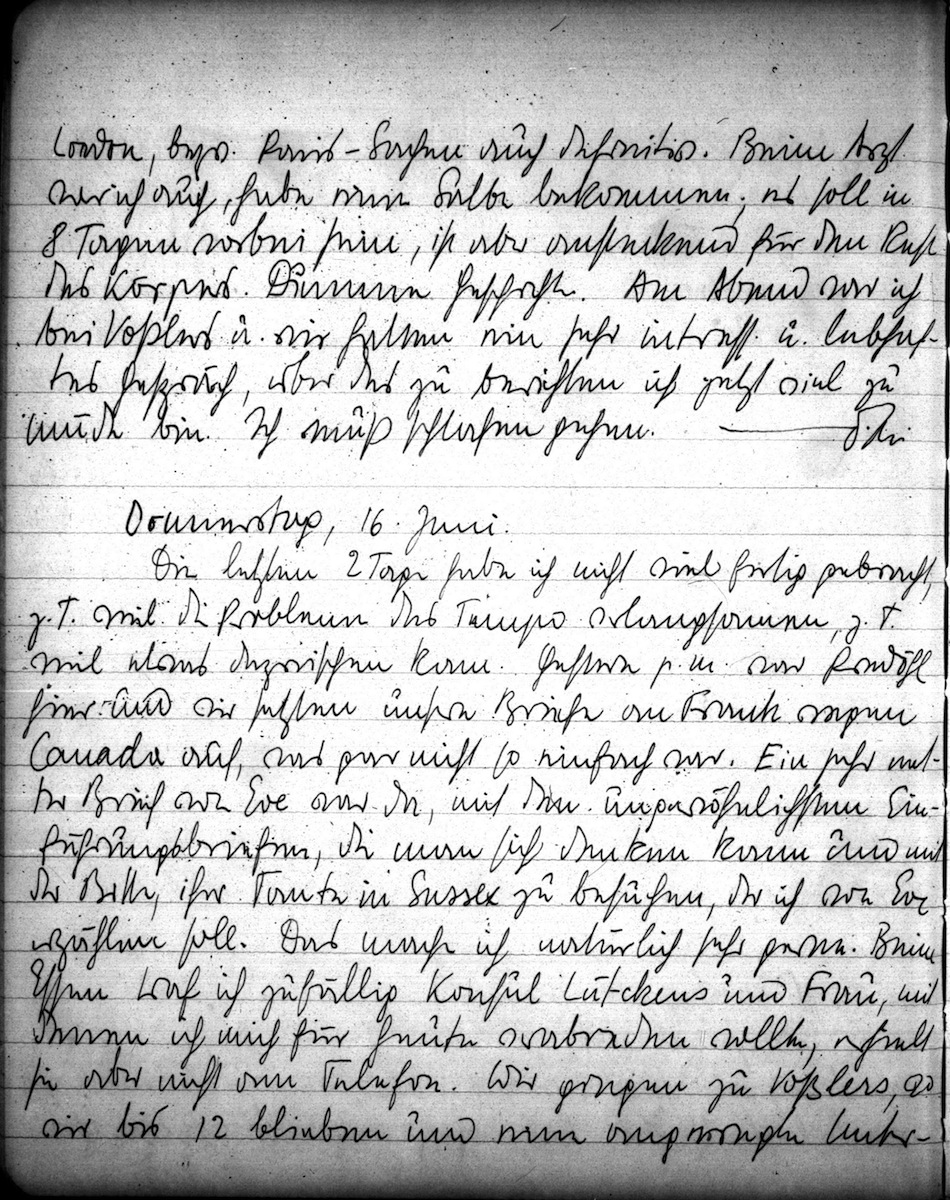 London, bezw. Paris-Sachen auch definitiv. Beim Arzt
war ich auch, habe eine Salbe bekommen; es soll in
8 Tagen vorbei sein, ist aber ansteckend für den Rest
des Körpers. Dumme Geschichte. Am Abend war ich
bei Voßlers u. wir hatten ein sehr intress. u. lebhaf-
tes Gespräch, über das zu berichten ich jetzt viel zu
müde bin. Ich muß schlafen gehen.
Donnerstag, 16. Juni.
Die letzten 2 Tage habe ich nicht viel fertig gebracht,
z.T. weil die Probleme das Tempo verlangsamen, z.T.
weil etwas dazwischen kam. Gestern p.m. war
hier und wir setzten unsre Briefe an Frank wegen
Canada auf, was gar nicht so einfach war. Ein sehr net-
ter Brief von Eve war da, mit den ungewöhnlichsten Ein-
führungsbriefen, die man sich denken kann und mit
der Bitte, ihre Tante in Sussex zu besuchen, der ich von Eve
erzählen soll. Das mache ich natürlich sehr gerne. Beim
Essen traf ich zufällig Konsul Lütckens und Frau, mit
denen ich mich für heute verabreden wollte, erhielt
sie aber nicht am Telefon. Wir gingen zu Voßlers, wo
wir bis 12 blieben und eine angeregte Unter-